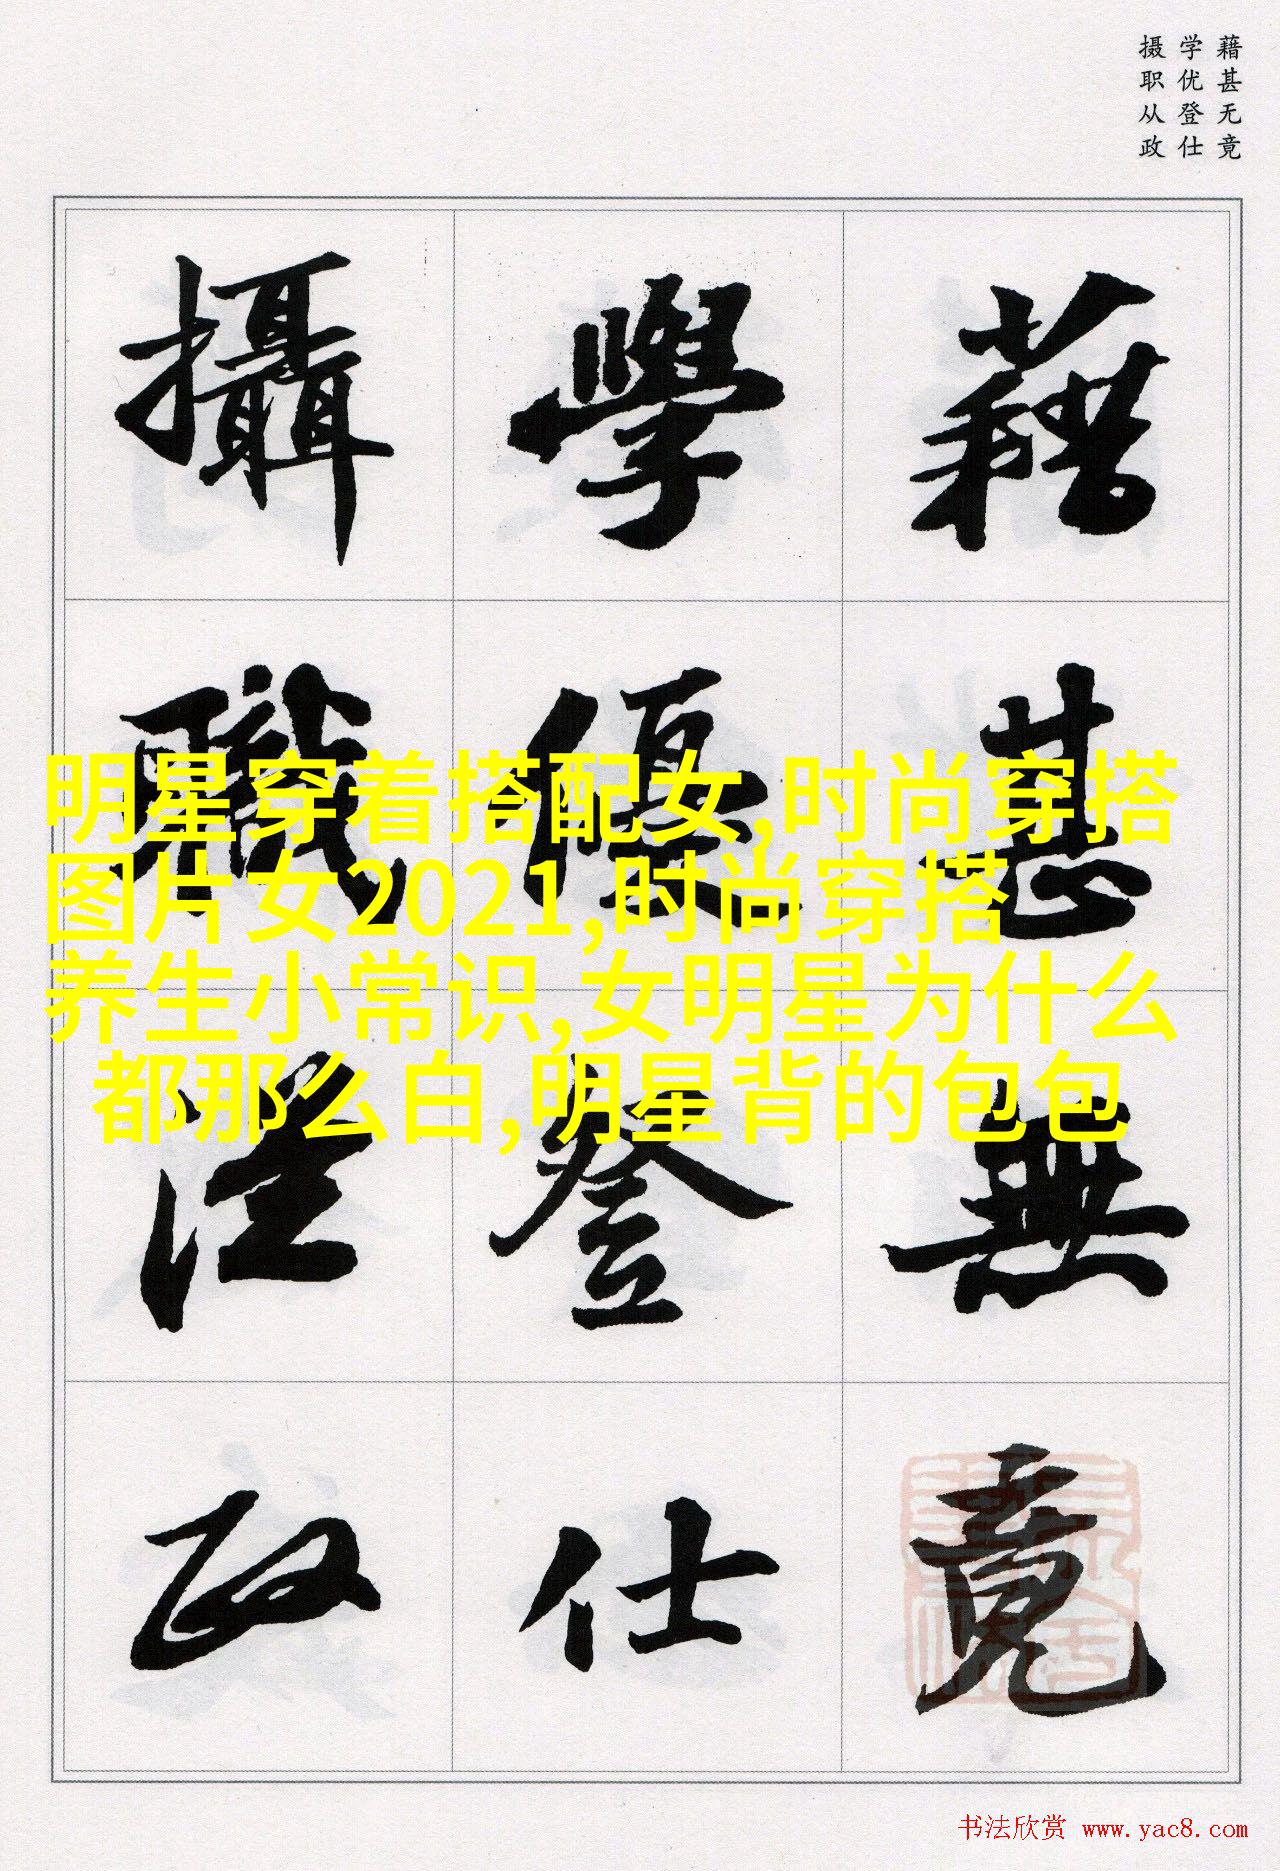 藉甚无竟
学优登仕
摄职从政
藉甚無竟
學優登仕
攝職從政
明星穿着搭配女,时尚穿搭
图片女2021,时尚穿搭
养生小常识,女明星为什么
都那么白,明星背的包包
书法欣赏 www.yac8.com